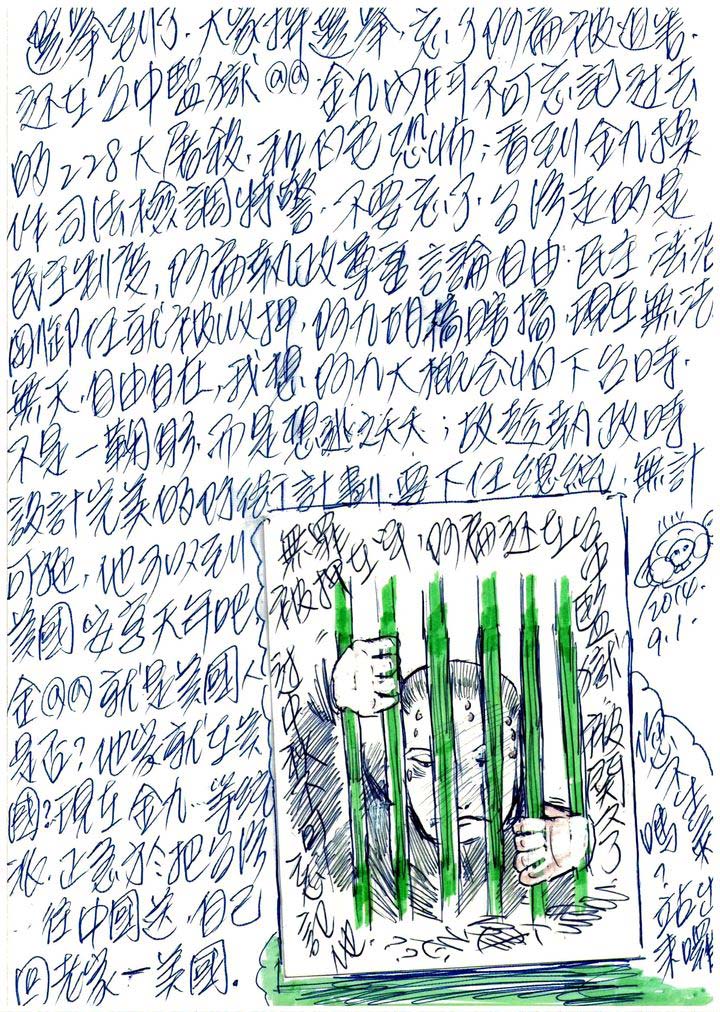 選舉到了.大家拚選舉.忘了阿扁被迫害.
還在台中監獄@@.金九內鬥不可忘記過去
的228大屠殺.和白色恐怖;看到金九操
作司法檢調特警.不要忘了.台灣走的是
民主制度,阿扁執政尊重言論自由.民主法治
剛卸任就被收押,阿九胡搞瞎搞.現在無法
無天.自由自在,我想.阿九大概會怕下台時.
不是一鞠躬.而是想逃之夭夭;故趁執政時
設計完美的防衛計劃.要下任總統.無計
可施,他可以到
美國安享天年吧
金@@就是美國人
是否?他家就在美
國?現在金九.等統
派.正急於把台灣
往中國送.自己
回老家一美國.
無罪
被押在牢,阿扁還在台
中監獄.被關久了
台中
不可忘記
他.
2014.
9.1.
您不生氣
嗎?站出
來囉